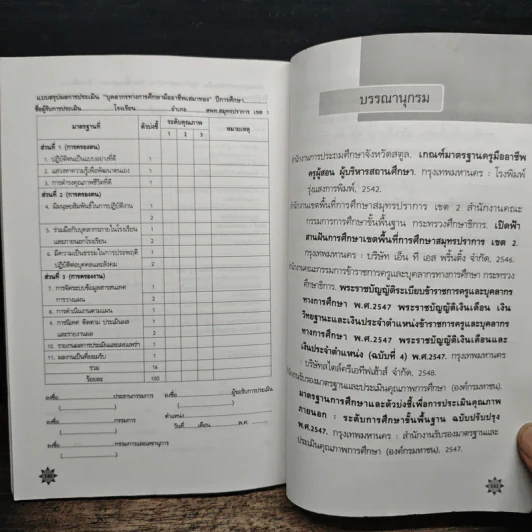 แบบสรุปผลการประเมิน "บุคลากรทางการศึกษามืออาชีพเสมาทอง" ปีการศึกษา
ชื่อผู้รับการประเมิน โรงเรียน อำเภอ สพท.สมุทรปราการ เขต 1
มาตรฐานที่ ตัวบ่งชี้ ระดับคุณภาพ หมายเหตุ
1 2 3
ส่วนที่ 1 (การครองตน)
1. ปฏิบัติตนเป็นแบบอย่างที่ดี 1
2. แสวงหาความรู้เพื่อพัฒนาตนเอง 1
3. การดำรงคุณภาพชีวิตที่ดี 1
ส่วนที่ 2 (การครองคน)
4. มีมนุษยสัมพันธ์ในการปฏิบัติงาน 1
2
5. ร่วมมือกับบุคลากรภายในโรงเรียน 1
และภายนอกโรงเรียน 2
6. มีความเป็นธรรมในการประพฤติ 1
ปฏิบัติต่อบุคคลและสังคม 2
ส่วนที่ 3 (การครองงาน)
7. การจัดระบบข้อมูลสารสนเทศ 1
การวางแผน 2
8. การดำเนินงานตามแผน 1
9. การนิเทศ ติดตาม ประเมินผล 1
และรายงานผล 2
10. รายงานผลการประเมินและเผยแพร่ 1
11. ผลงานเป็นที่ยอมรับ 1
รวม 16
ร้อยละ 100
ลงชื่อ ประธานกรรมการ ลงชื่อ ผู้รับการประเมิน
( ) ( )
ลงชื่อ กรรมการ ตำแหน่ง
( ) วันที่ เดือน พ.ศ.
ลงชื่อ กรรมการและเลขานุการ
( )
บรรณานุกรม
สำนักงานการประถมศึกษาจังหวัดสตูล. เกณฑ์มาตรฐานครูมืออาชีพ
ครูผู้สอน ผู้บริหารสถานศึกษา. กรุงเทพมหานคร : โรงพิมพ์
รุ่งแสงการพิมพ์. 2542.
สำนักงานเขตพื้นที่การศึกษาสมุทรปราการ เขต 2 สำนักงานคณะ
กรรมการการศึกษาขั้นพื้นฐาน กระทรวงศึกษาธิการ. เปิดฟ้า
สานฝันการศึกษาเขตพื้นที่การศึกษาสมุทรปราการ เขต 2.
กรุงเทพมหานคร : บริษัท เอ็น ที เอส พริ้นติ้ง จำกัด. 2546.
สำนักงานคณะกรรมการข้าราชการครูและบุคลากรทางการศึกษา กระทรวง
ศึกษาธิการ. พระราชบัญญัติระเบียบข้าราชการครูและบุคลากร
ทางการศึกษา พ.ศ.2547 พระราชบัญญัติเงินเดือน เงิน
วิทยฐานะและเงินประจำตำแหน่งข้าราชการครูและบุคลากร
ทางการศึกษา พ.ศ.2547 พระราชบัญญัติเงินเดือนและ
เงินประจำตำแหน่ง (ฉบับที่ 4) พ.ศ.2547. กรุงเทพมหานคร
: บริษัทสไตล์ครีเอทีฟเฮ้าส์ จำกัด. 2548.
สำนักงานรับรองมาตรฐานและประเมินคุณภาพการศึกษา (องค์กรมหาชน).
มาตรฐานการศึกษาและตัวบ่งชี้เพื่อการประเมินคุณภาพ
ภายนอก : ระดับการศึกษาขั้นพื้นฐาน ฉบับปรับปรุง
พ.ศ.2547. กรุงเทพมหานคร : สำนักงานรับรองมาตรฐานและ
ประเมินคุณภาพการศึกษา (องค์กรมหาชน). 2547.